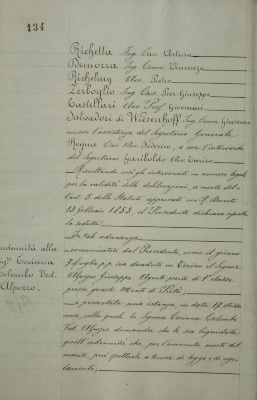 134
Richetta Ing. Cav. Arturo
Demorra Ing. Comm. Vincenzo
Richelmy Cav. Pietro
Zerboglio Ing. Cav. Pier Giuseppe
Castellari Cav. Prof. Giovanni
Salvadori di Wiedenhoff Ing. Comm. Giacomo
con l'assistenza del Segretario Generale
Regna Cav. Avv. Federico, e con l'intervento
del Segretario Gariboldo Avv. Enrico
Risultando così gli intervenuti in numero legale
per la validità delle deliberazioni, a mente del-
l'art. 5 dello Statuto approvato con R. Decreto
13 Febbraio 1853, il Presidente dichiara aperta
la seduta.
In tale adunanza
comunicatosi dal Presidente, come il giorno
7 Luglio p.p. sia deceduto in Torino il Signor
Alpozzo Giuseppe Agente perito di 1ª classe
presso questo Monte di Pietà;
e presentata una istanza, in data 17 stesso
mese, colla quale la Signora Corinna Colombo
Ved. Alpozzo domanda che le sia liquidata
quell'indennità che, per l'avvenuta morte del
marito, può spettarle a tenore di legge e di rego-
lamento;
Indennità alla
Sig.ra Corinna
Colombo Ved.
Alpozzo.